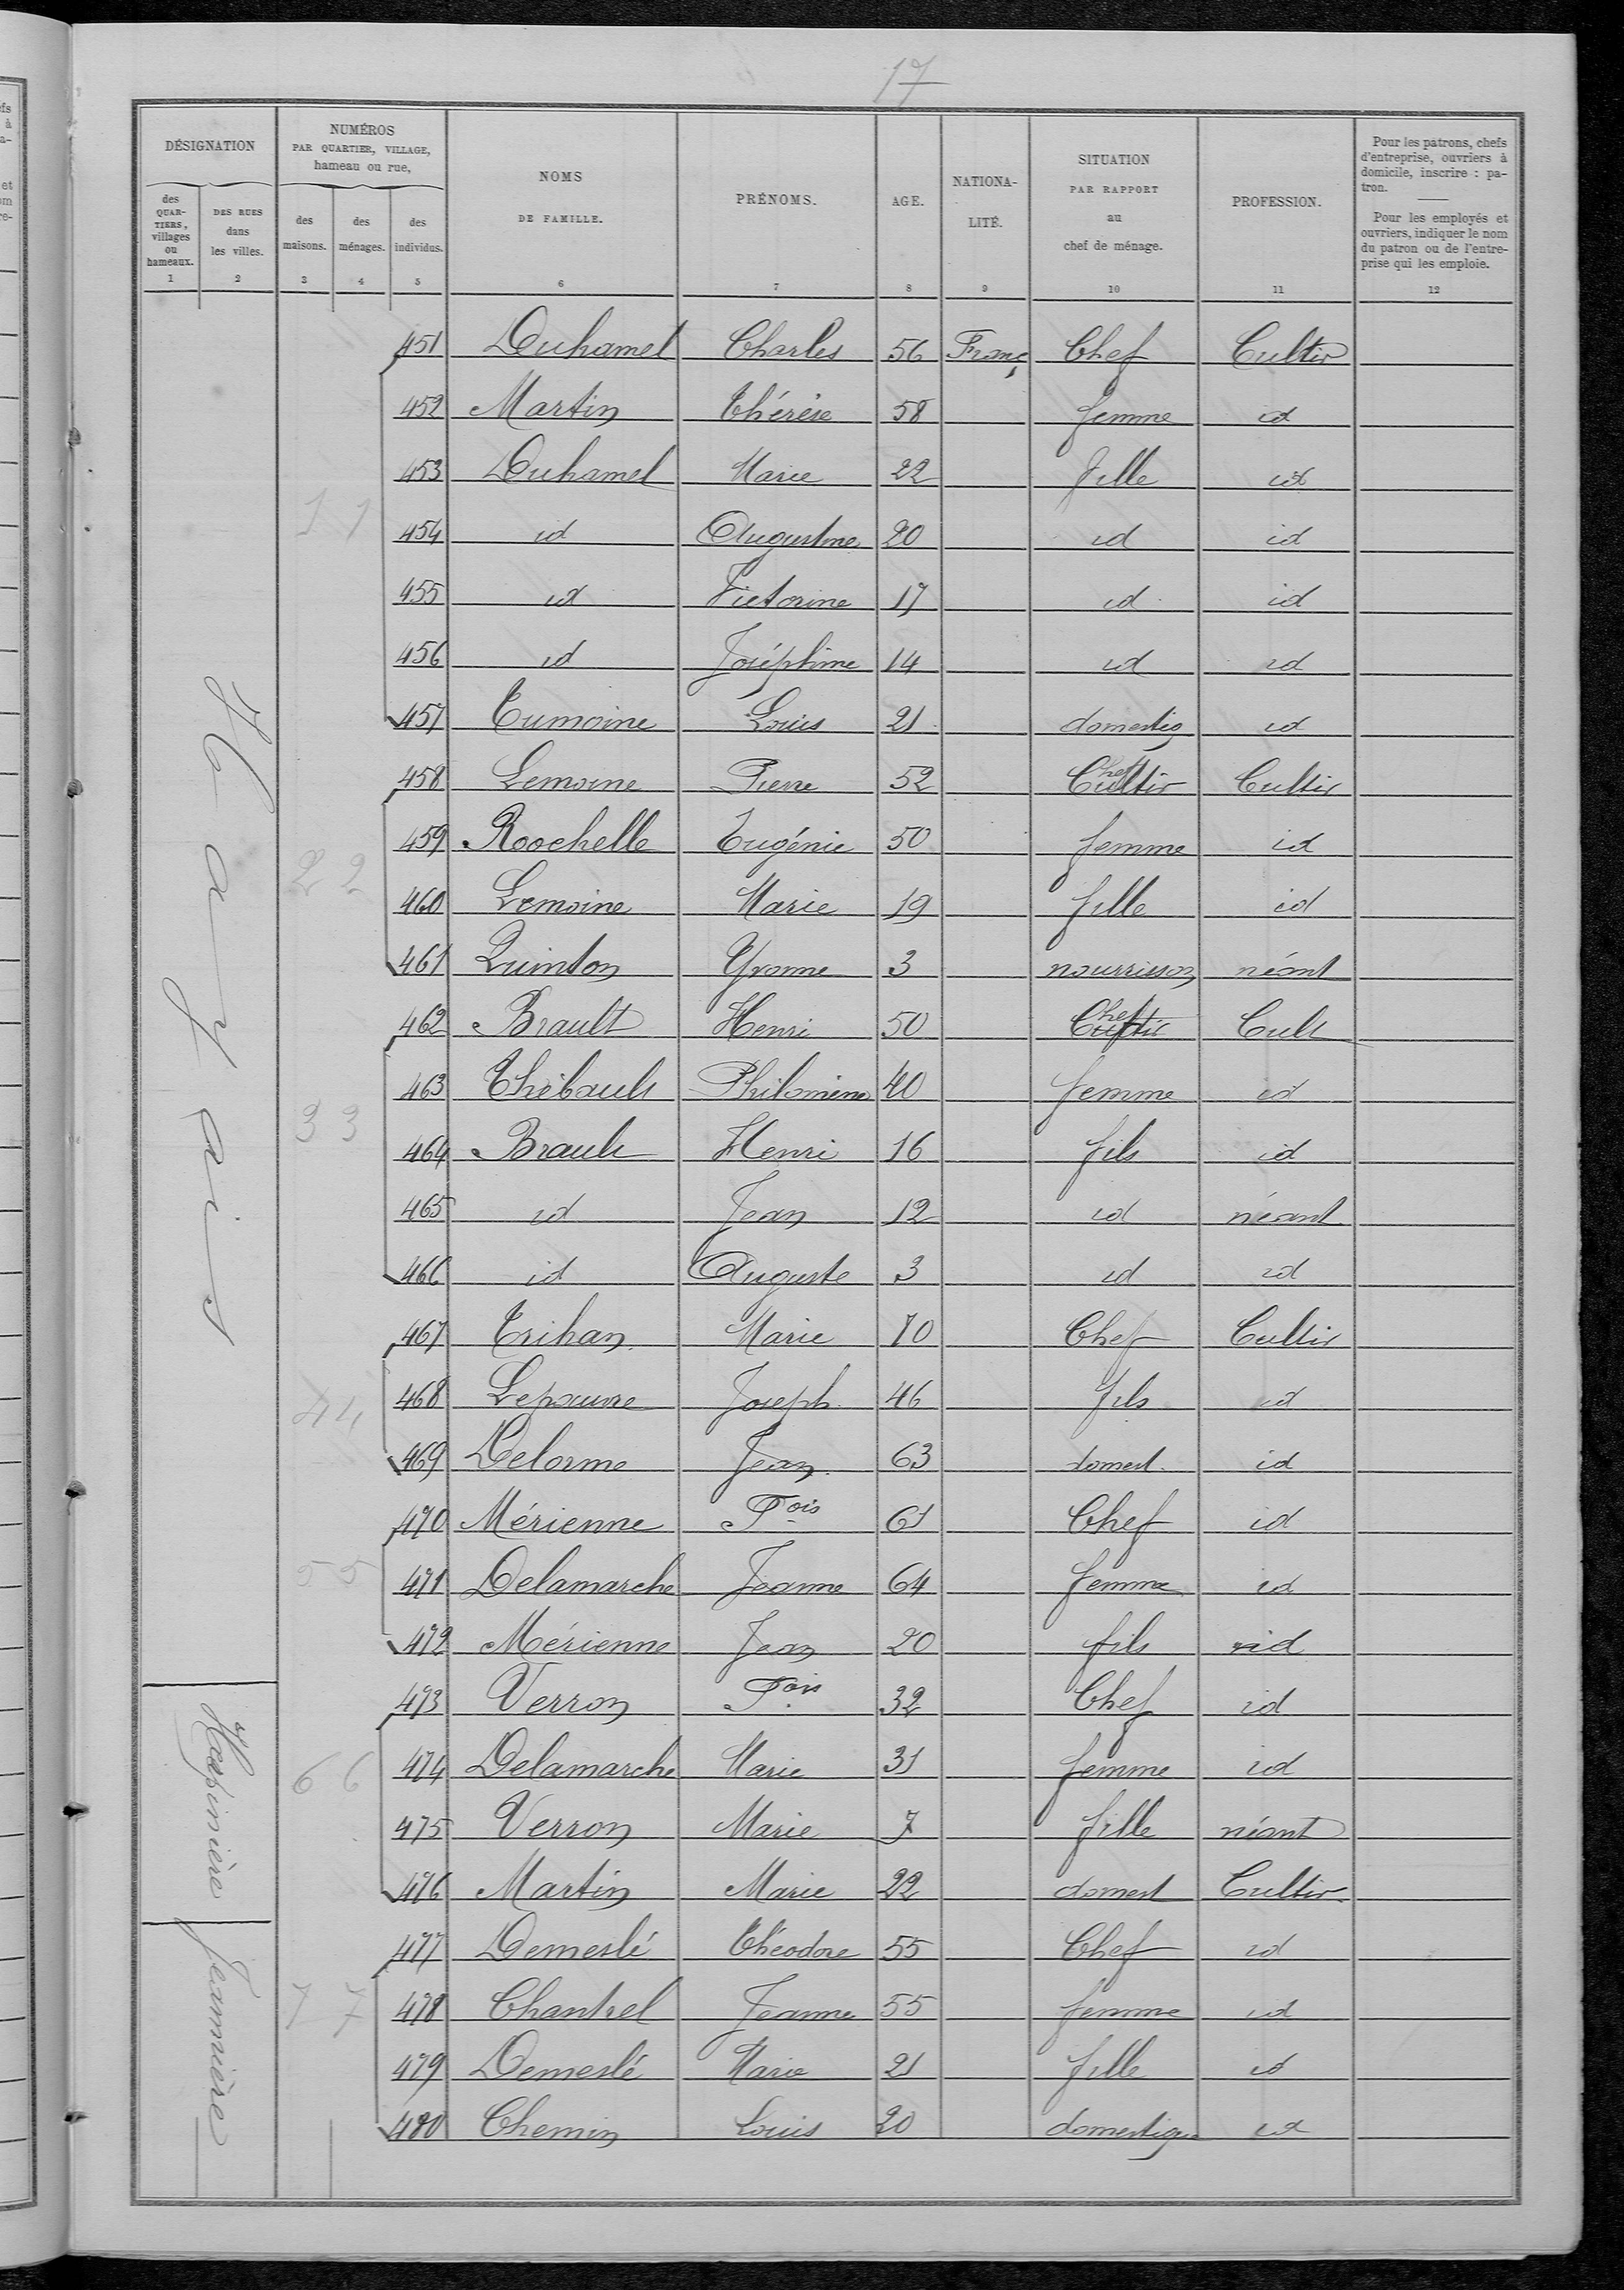 17
DÉSIGNATION
NUMÉROS
PAR QUARTIER, VILLAGE,
hameau ou rue,
des QUARTIERS, villages ou hameaux.
DES RUES dans les villes.
des maisons.
des ménages.
des individus.
NOMS DE FAMILLE.
PRÉNOMS.
AGE.
NATIONALITÉ.
SITUATION PAR RAPPORT au chef de ménage.
PROFESSION.
Pour les patrons, chefs d'entreprise, ouvriers à domicile, inscrire : patron.
Pour les employés et ouvriers, indiquer le nom du patron ou de l'entreprise qui les emploie.
1 2 3 4 5 6 7 8 9 10 11 12
451 Duhamel Charles 56 Franç Chef Cultiv
452 Martin Thérèse 58 femme id
453 Duhamel Marie 22 fille id
1 1 454 id Augustine 20 id id
455 id Victorine 17 id id
456 id Joséphine 14 id id
457 Tumoine Louis 21 domestiq id
458 Lemoine Pierre 52 Chef Cultiv Cultiv
2 2 459 Roochelle Eugénie 50 femme id
460 Lemoine Marie 19 fille id
461 Quinton Yvonne 3 nourrisson néant
462 Brault Henri 50 Chef Cultiv Cult
463 Thébault Philomène 40 femme id
3 3 464 Brault Henri 16 fils id
465 id Jean 12 id néant
466 id Auguste 3 id id
467 Trihan Marie 70 Chef Cultiv
4 4 468 Lepauvre Joseph 46 fils id
469 Delorme Jean 63 domest id
470 Mérienne Fois 61 Chef id
5 5 471 Delamarche Jeanne 64 femme id
472 Mérienne Jean 20 fils id
473 Verron Fois 32 Chef id
6 6 474 Delamarche Marie 31 femme id
475 Verron Marie 7 fille néant
476 Martin Marie 22 domest Cultiv
477 Demeslé Théodore 55 Chef id
7 7 478 Chantrel Jeanne 55 femme id
479 Demeslé Marie 21 fille id
480 Chemin Louis 20 domestique id
Jeannière